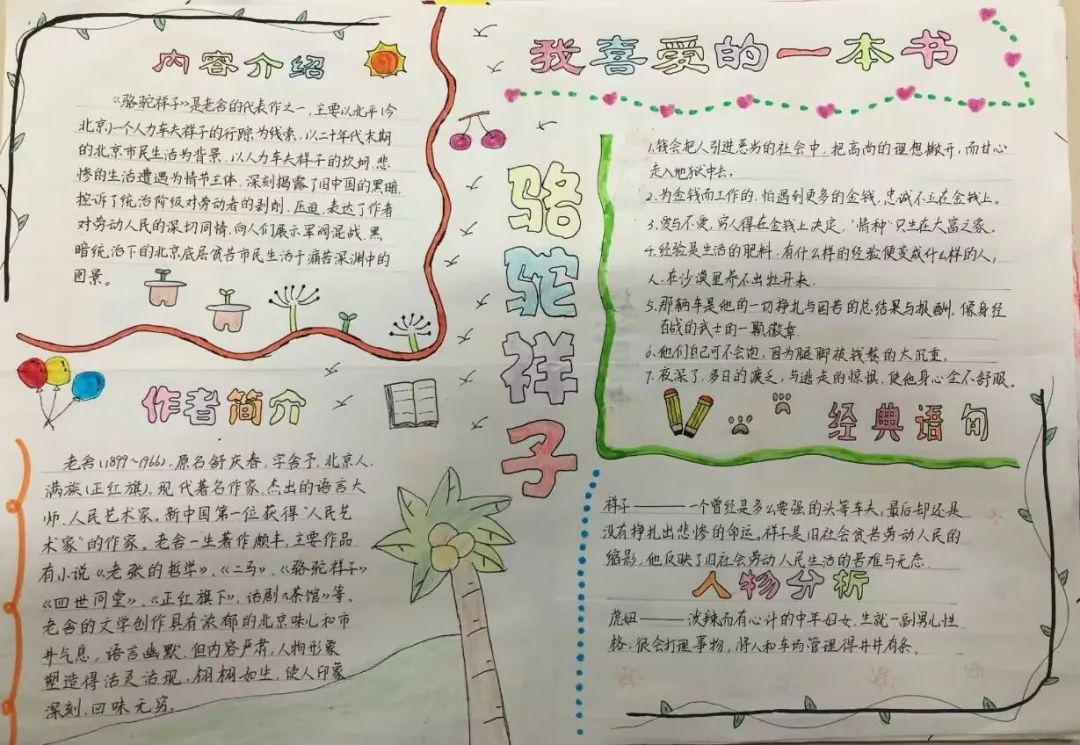 我喜爱的一本书
骆驼祥子
内容介绍
《骆驼祥子》是老舍的代表作之一,主要以北平(今
北京)一个人力车夫祥子的行踪为线索,以二十年代末期
的北京市民生活为背景,以人力车夫祥子的坎坷、悲
惨的生活遭遇为情节主体,深刻揭露了旧中国的黑暗,
控诉了统治阶级对劳动者的剥削、压迫,表达了作者
对劳动人民的深切同情,向人们展示军阀混战、黑
暗统治下的北京底层贫苦市民生活于痛苦深渊中的
图景。
作者简介
老舍(1899~1966),原名舒庆春,字舍予,北京人,
满族(正红旗)。现代著名作家,杰出的语言大
师、人民艺术家,新中国第一位获得“人民艺
术家”的作家。老舍一生著作颇丰,主要作品
有小说《老张的哲学》、《二马》、《骆驼祥子》
《四世同堂》、《正红旗下》,话剧《茶馆》等。
老舍的文学创作具有浓郁的北京味儿和市
井气息,语言幽默,但内容严肃,人物形象
塑造得活灵活现、栩栩如生,使人印象
深刻,回味无穷。
1.钱会把人引进恶劣的社会中,把高尚的理想撇开,而甘心
走入地狱中去。
2.为金钱而工作的,怕遇到更多的金钱,忠诚不立在金钱上。
3.爱与不爱,穷人得在金钱上决定,“情种”只生在大富之家。
4.经验是生活的肥料,有什么样的经验便变成什么样的人,
人.在沙漠里养不出牡丹来.
5.那辆车是他的一切挣扎与困苦的总结果与报酬,像身经
百战的武士的一颗徽章.
6.他们自己可不会跑,因为腿脚被钱赘的太沉重.
7.夜深了,多日的疲乏,与逃走的惊惧,使他身心全不舒服。
经典语句
祥子———一个曾经是多么要强的头等车夫,最后却还是
没有挣扎出悲惨的命运。祥子是旧社会贫苦劳动人民的
缩影,他反映了旧社会劳动人民生活的苦难与无态.
人物分析
虎妞———泼辣而有心计的中年妇女,生就一副男儿性
格,很会打理事物,将人和车场管理得井井有条。